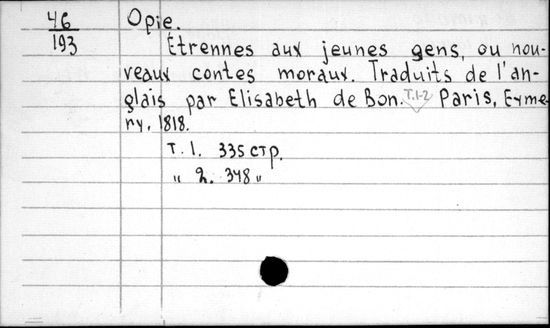 46
193
Opie.
Etrennes aux jeunes gens, ou nou-
veaux contes moraux. Traduits de l'an-
glais par Elisabeth de Bon. T.1-2 Paris, Eyme-
ry, 1818.
Т. 1. 335 стр.
" 2. 348 "